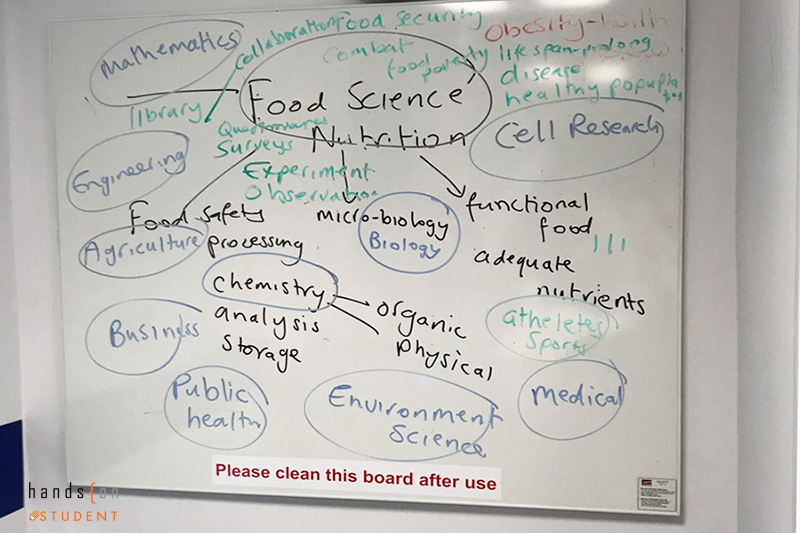 Mathematics
collaboration
Food security
Obesity-health
Combat
food poverty
life span-prolong
disease
healthy
Food Science
Nutrition
library
Questionnaires
Surveys
Cell Research
Engineering
Experiment
Observation
Food safety
micro-biology
Biology
functional
food
Agriculture
processing
adequate
nutrients
chemistry
organic
physical
analysis
storage
Business
atheletes
sports
Public
health
Environment
Science
medical
Please clean this board after use
hands on
STUDENT